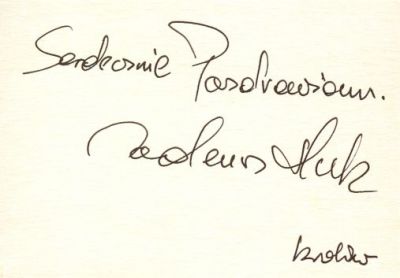 Serdecznie Pozdrawiam.
Tadeusz Huk
Kraków